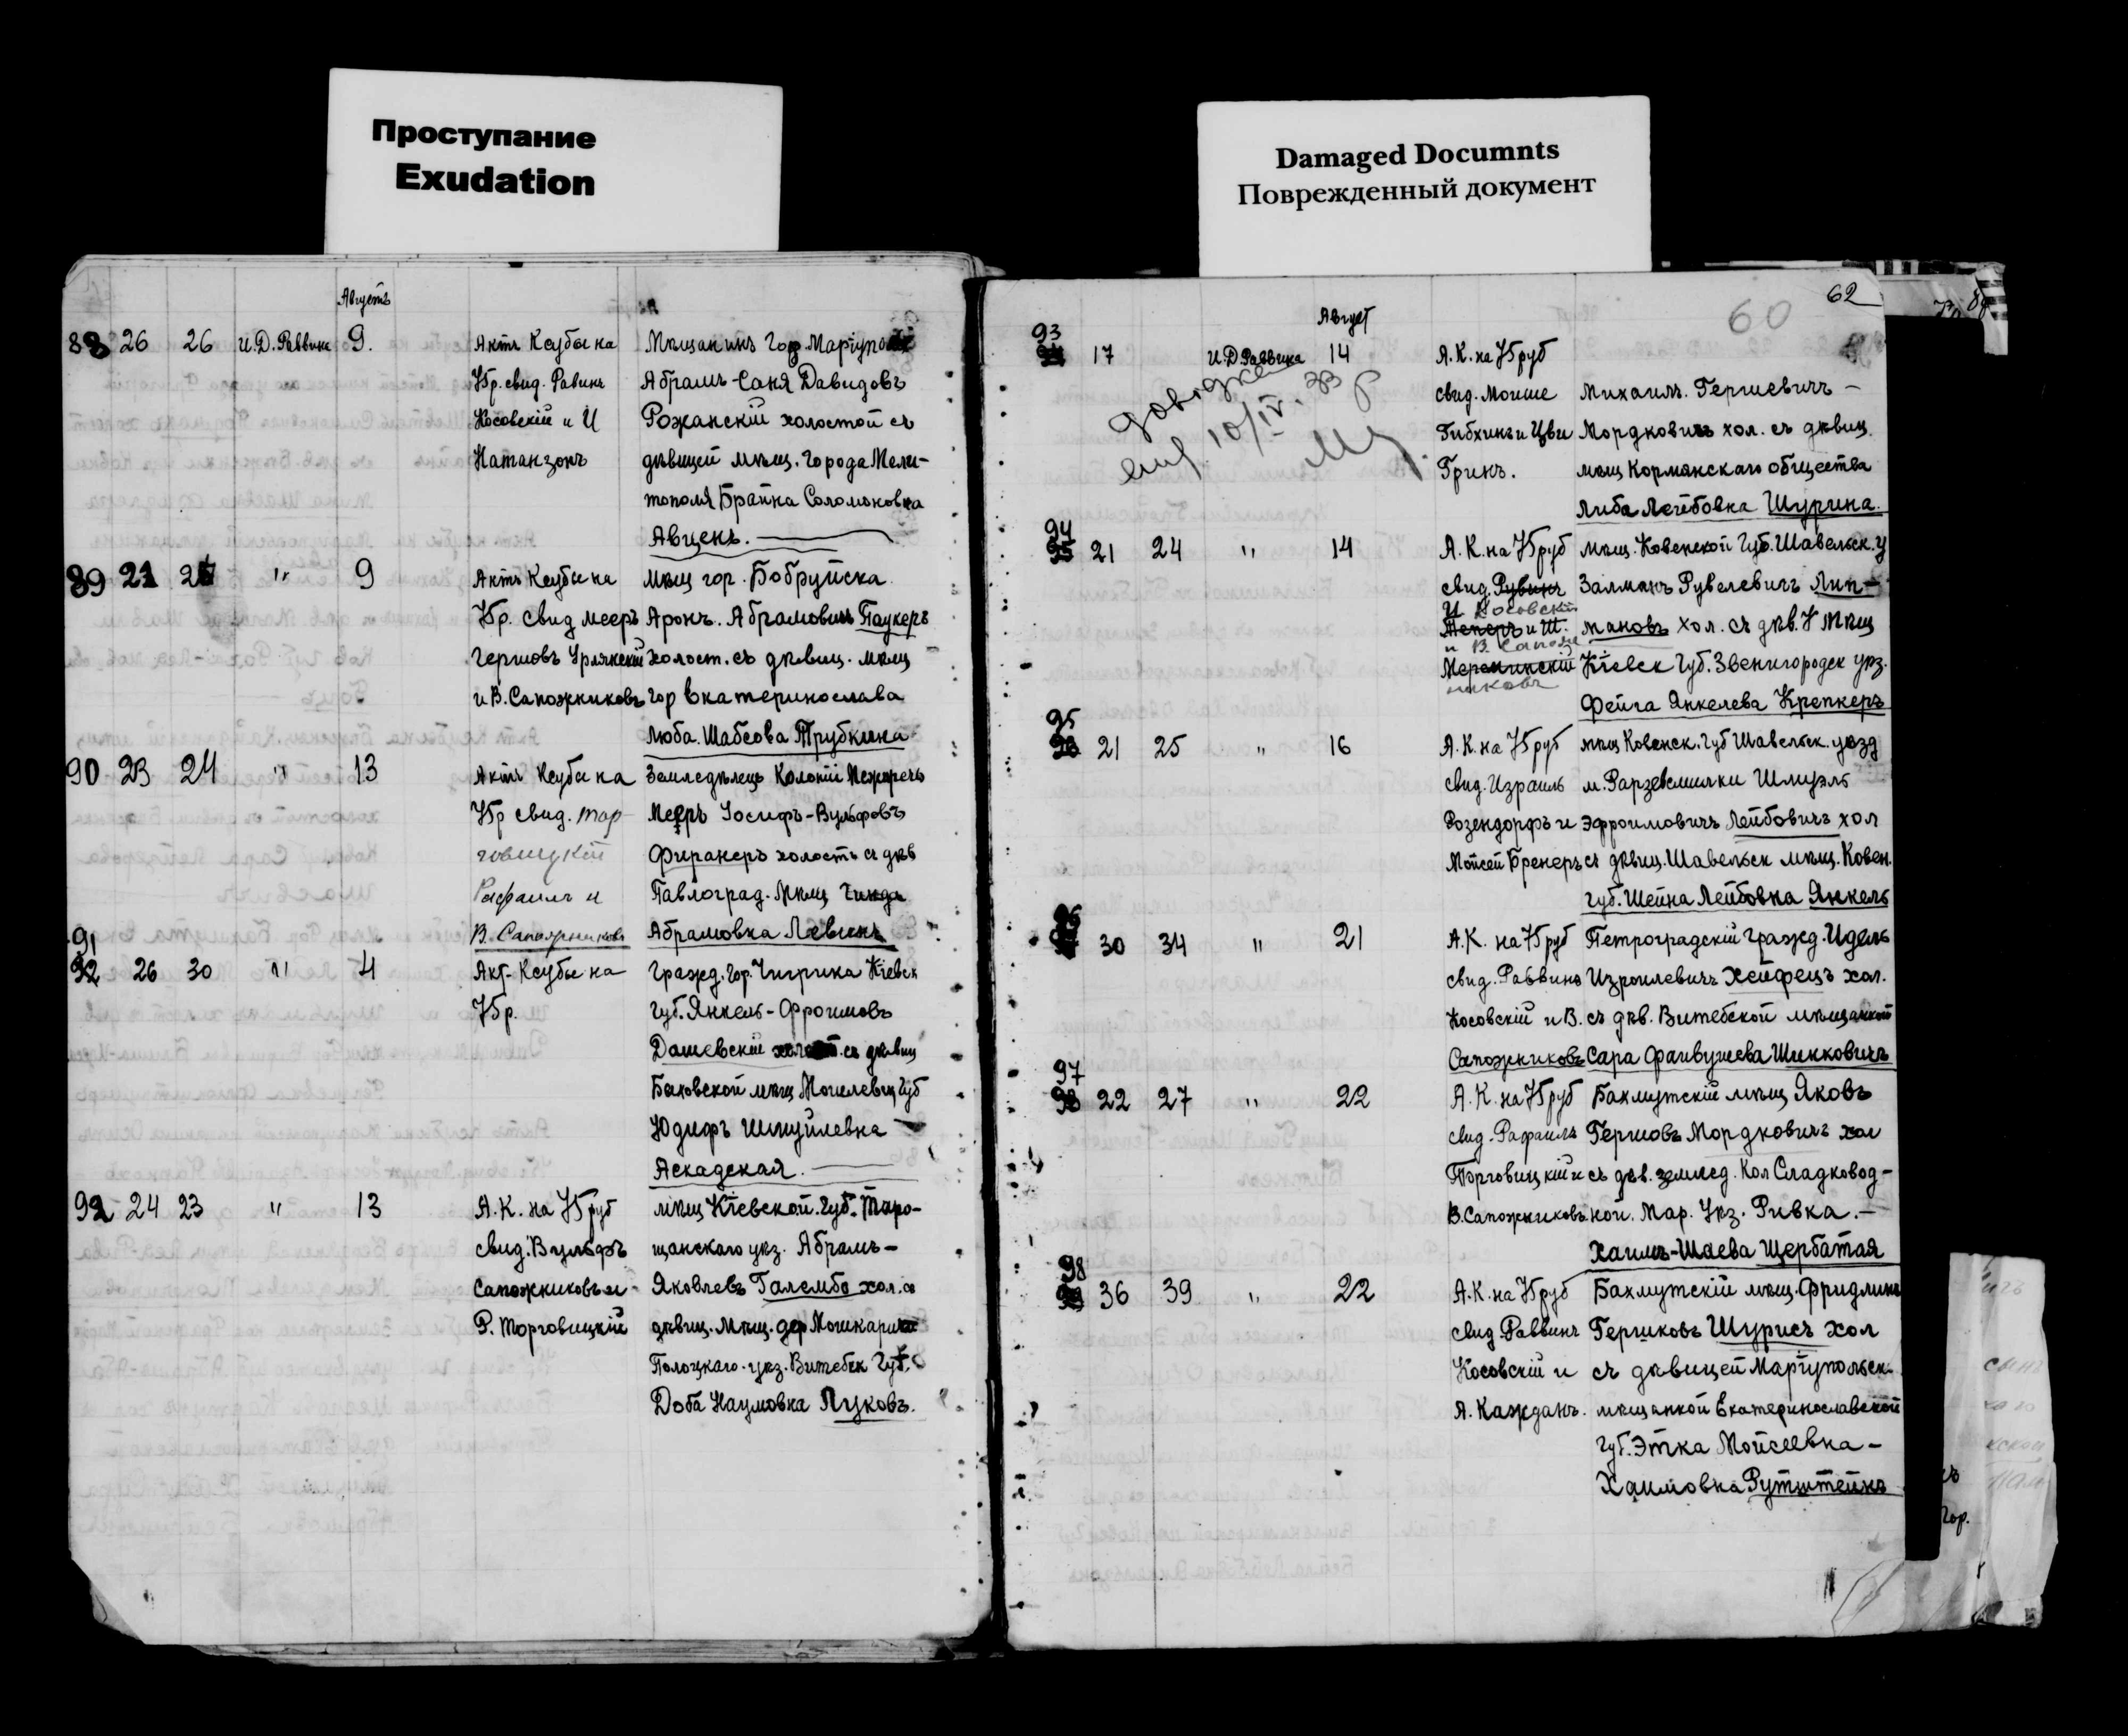 Проступание
Exudation
Damaged Documnts
Поврежденный документ
Августъ
88 26 26 И.Д. Раввина 9. Актъ Ксубы на Мѣщанинъ Гор Маріупол
75р. свид. Равинъ Абрамъ-Саня Давидовъ
Косовскій и И Рожанскій холостой съ
Натанзонъ дѣвицей мѣщ. Города Мели-
тополя Брайна Соломоновна
Авценъ.
89 21 " 9 Актъ Ксубы на мѣщ гор. Бобруйска
75р. свид Мееръ Аронъ. Абрамовичъ Паукеръ
Гершовъ Урлянскій холост. съ дѣвиц. мѣщ
и В. Сапожниковъ гор Екатеринослава
Люба. Шабсова Трубкина
90 23 24 " 13 Актъ Ксубы на Земледѣлецъ Колоніи Межиречъ
75р свид. Тор- Мееръ Іосифъ-Вульфовъ
говицкій Фиранеръ холостъ съ дѣв
Рафаилъ и Павлоград. Мѣщ
В. Сапожниковъ Абрамовна Левинъ
91
92 26 30 " 4 Акт- Ксубы на Гражд. гор. Чигрина Кіевск
75р. Губ. Янкель-Фроимовъ
Дашевскій холост. съ дѣвиц
Быховской мѣщ Могилевск Губ
Юдифъ Шмуйлевна
Аскадская.
92 24 23 " 13 А.К. на 75руб мѣщ Кіевской. Губ. Тара-
свид. Вульфъ щанскаго уѣз. Абрамъ-
Сапожниковъ и- Яковлевъ Галембо хол. съ
Р. Торговицкій дѣвиц. Мѣщ.
Полоцкаго. уѣз. Витебск Губ.
Доба Наумовна Луковъ.
62
60
Август
93
17 И.Д. Раввина 14 А.К. на 75руб
свид. Моише Михаилъ. Гершевичъ -
Гибхинъ и Цви Мордковичъ хол. съ дѣвиц.
Гринъ. мѣщ Кормянскаго общества
Либа Лейбовна Шурина.
10/IV.
94
95 21 24 " 14 А.К. на 75руб мѣщ. Ковенской Губ. Шавельск. у
свид. Рувинъ Залманъ Рувелевичъ Лип-
И Косовскій
и Ш. мановъ хол. съ дѣв. мѣщ
и В. Сапож
Кіевск Губ. Звенигородск уѣз.
никовъ
Фейга Янкелева Крепкеръ
95
96 21 25 " 16 А.К. на 75руб мѣщ Ковенск. Губ Шавельск. уѣзд
свид. Израиль м. Шмуэль
Розендорфъ и Эфроимовичъ Лейбовичъ хол
Мойсей Бренеръ съ дѣвиц. Шавельск мѣщ. Ковен.
губ. Шейна Лейбовна Янкель
96
30 34 " 21 А.К. на 75руб Петроградскій гражд. Идель
свид. Раввинъ Изроилевичъ Хейфецъ хол.
Косовскій и В. съ дѣв. Витебской мѣщанкой
Сапожниковъ Сара Файвушева Шинковичъ
97
98 22 27 " 22 А.К. на 75руб Бахмутскій мѣщ Яковъ
свид. Рафаилъ Гершовъ Мордковичъ хол
Торговицкій и съ дѣв. землед. Кол Сладковод-
В. Сапожниковъ. ной. Мар. Уѣз. Ривка. -
Хаимъ-Шаева Щербатая
98
99 36 39 " 22 А.К. на 75руб Бахмутскій мѣщ.
свид. Раввинъ Гершковъ Шурисъ хол
Косовскій и съ дѣвицей Маріупольск-
А. Кажданъ. мѣщанкой Екатеринославской
Губ. Этка Мойсеевна -
Хаимовна Рутштейнъ